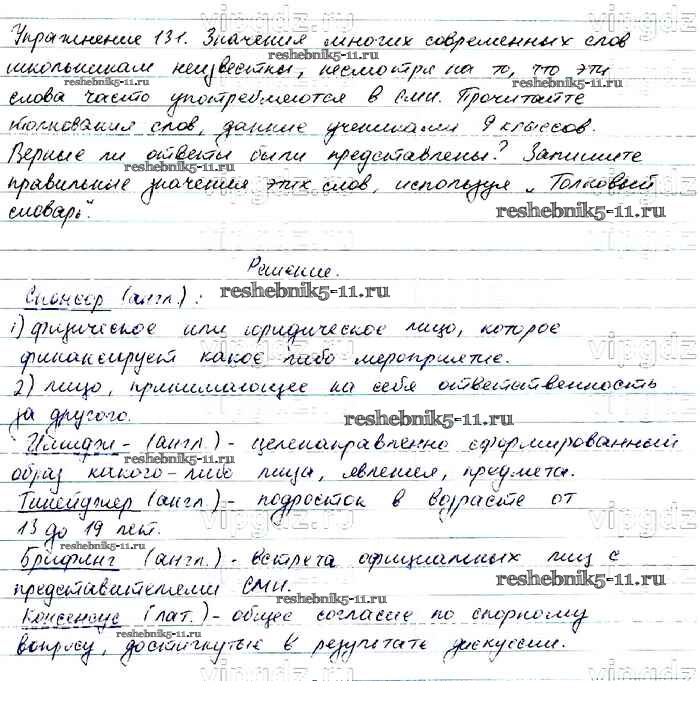 vipgdz.ru
Упражнение 131. Значения многих современных слов
reshebnik5-11.ru
школьникам неизвестны, несмотря на то, что эти
слова часто употребляются в СМИ. Прочитайте
толкования слов, данные учениками 9 классов.
Верные ли ответы были представлены? Запишите
reshebnik5-11.ru
правильные значения этих слов, используя „Толковый
словарь“.
reshebnik5-11.ru
Решение.
Спонсор (англ.):
reshebnik5-11.ru
1) физическое или юридическое лицо, которое
финансирует какое либо мероприятие.
vipgdz
2) лицо, принимающее на себя ответственность
за другого.
reshebnik5-11.ru
Имидж - (англ.) - целенаправленно сформированный
образ какого-либо лица, явления, предмета.
Тинейджер (англ.) - подросток в возрасте от
13 до 19 лет.
vipgdz.ru
vipgdz
reshebnik5-11.ru
Брифинг (англ.) - встреча официальных лиц с
представителями СМИ.
reshebnik5-11.ru
reshebnik5-11.ru
Консенсус (лат.) - общее согласие по спорному
reshebnik5-11.ru
вопросу, достигнутые в результате дискуссии.
vipgdz.ru
vipgdz